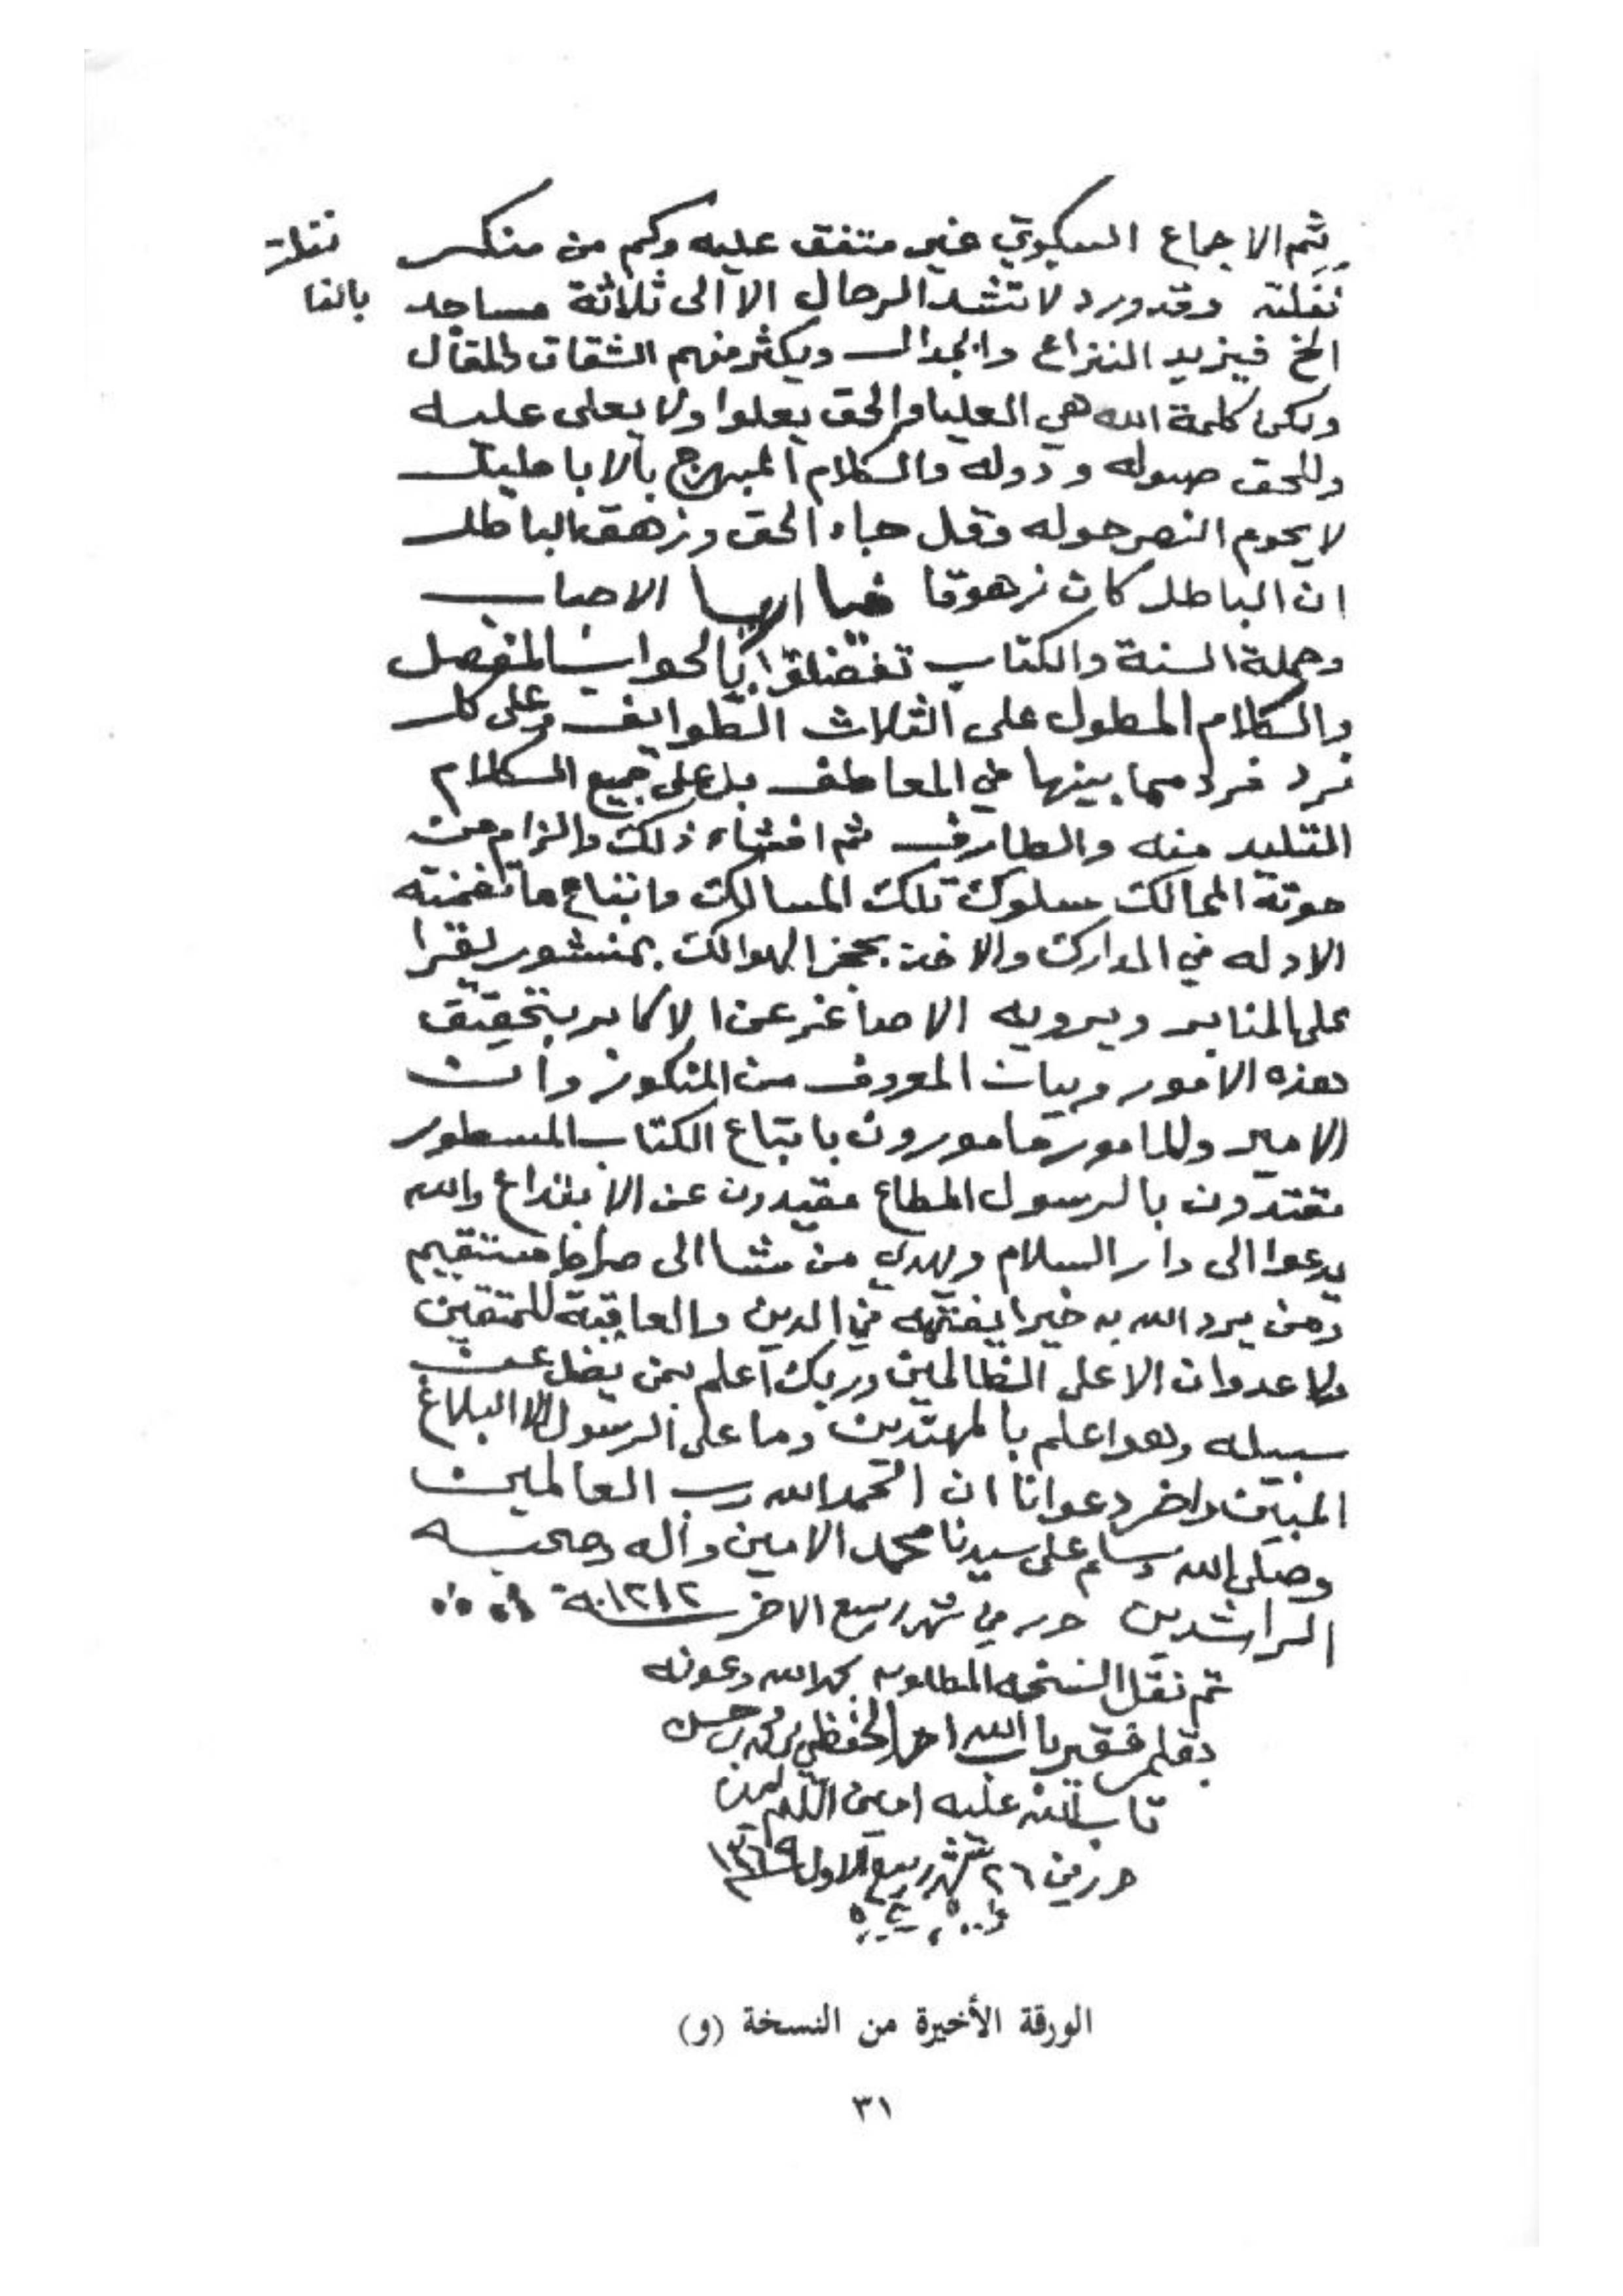 ثم الاجماع السكوتي غير متفق عليه وكم من منكر
نقلته وقد ورد لا تشد الرحال الا الى ثلاثة مساجد
الخ فيزيد النزاع والجدال ويكثر منهم الشقاق والمقال
ولكن كلمة الله هي العليا والحق يعلوا ولا يعلى عليه
وللحق صوله ودوله والكلام المبهرج بالاباطيل
لا يحوم النصر حوله وقل جاء الحق وزهق الباطل
ان الباطل كان زهوقا فيا ايها الاحباب
وحملة السنة والكتاب تفضلوا بالجواب المفصل
والكلام المطول على الثلاث الطوايف وعلى كل
فرد فرد مما بينها في المعاطف بل على جميع الكلام
التليد منه والطارف ثم افشاء ذلك والزام من
حوته الممالك سلوك تلك المسالك واتباع ما تضمنته
الادله في المدارك والاخذ بحجز الهوالك بمنشور يقرا
على المنابر ويرويه الاصاغر عن الاكابر بتحقيق
هذه الامور وبيان المعروف من المنكور وان
الامير والمامور مامورون باتباع الكتاب المسطور
مقتدون بالرسول المطاع مقيدون عن الابتداع والله
يدعوا الى دار السلام ويهدي من يشا الى صراط مستقيم
ومن يرد الله به خيرا يفقهه في الدين والعاقبة للمتقين
ولا عدوان الا على الظالمين وربك اعلم بمن يضل عن
سبيله وهو اعلم بالمهتدين وما على الرسول الا البلاغ
المبين واخر دعوانا ان الحمد لله رب العالمين
وصلى الله وسلم على سيدنا محمد الامين وآله وصحبه
الراشدين حرر في شهر ربيع الاخر سنة ١٢١٢
تم نقل النسخه المطلوبه بحمد الله وعونه
بقلم فقير باب الله احمد الحفظي بن محمد بن حسن
تاب الله عليه امين اللهم امين
حرر في ٢٦ شهر ربيع الاول ١٣٦٩
الورقة الأخيرة من النسخة (و)
٣١